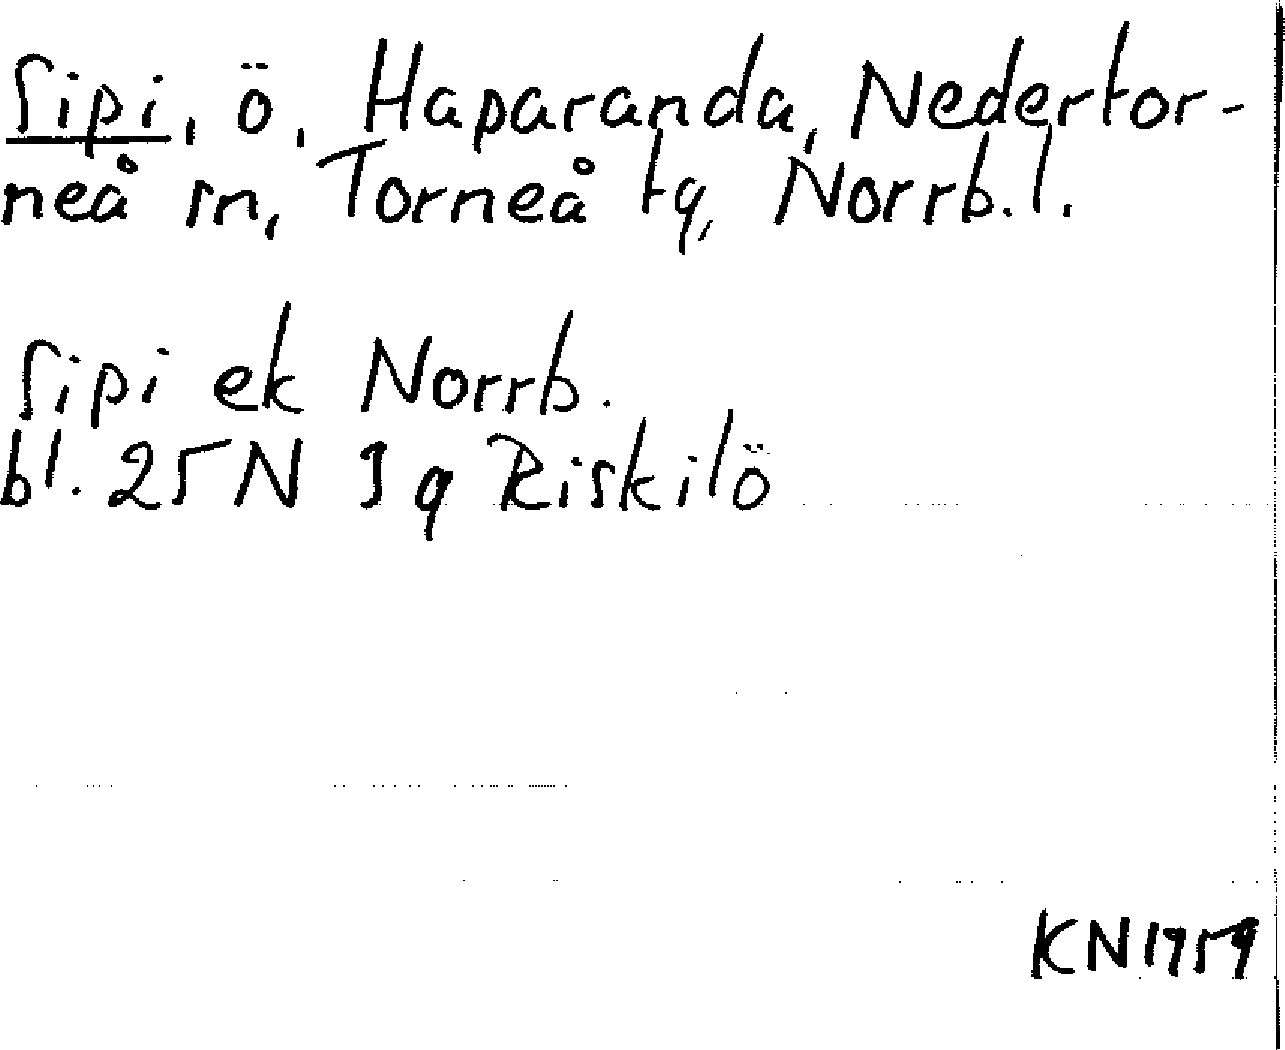 Sipi, ö, Haparanda, Nedertor-
neå sn, Torneå tg, Norrb. l.
Sipi ek Norrb.
bl. 25N 3g Riskilö
KN 1959